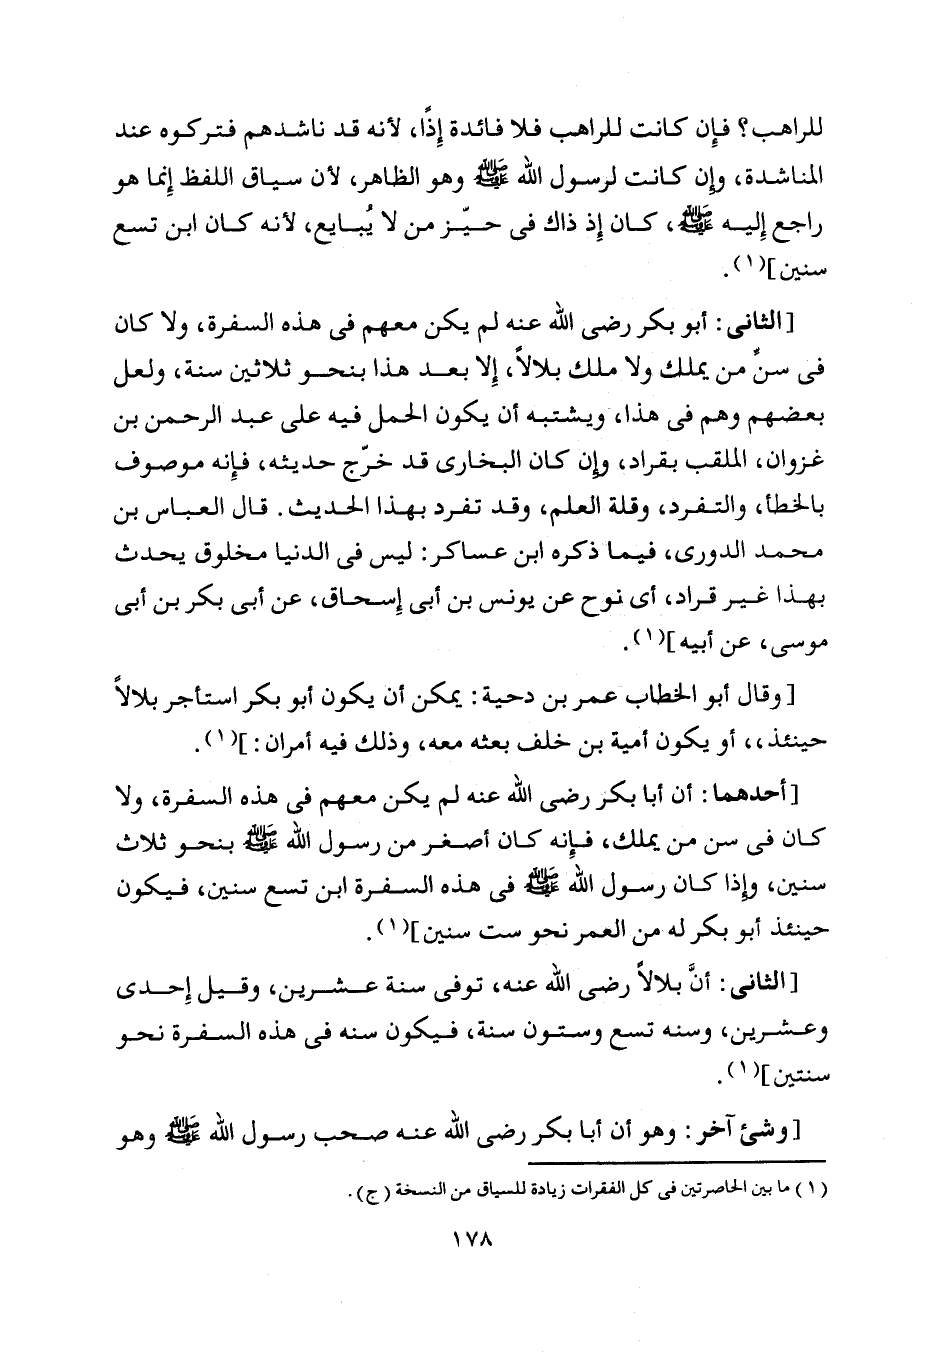 للراهب؟ فإن كانت للراهب فلا فائدة إذًا، لأنه قد ناشدهم فتركوه عند
المناشدة، وإن كانت لرسول الله ﷺ وهو الظاهر، لأن سياق اللفظ إنما هو
راجع إليه ﷺ، كان إذ ذاك فى حيّز من لا يُبايع، لأنه كان ابن تسع
سنين](١).
[الثانى: أبو بكر رضى الله عنه لم يكن معهم فى هذه السفرة، ولا كان
فى سنٍّ من يملك ولا ملك بلالاً، إلا بعد هذا بنحو ثلاثين سنة، ولعل
بعضهم وهم فى هذا، ويشتبه أن يكون الحمل فيه على عبد الرحمن بن
غزوان، الملقب بقراد، وإن كان البخارى قد خرّج حديثه، فإنه موصوف
بالخطأ، والتفرد، وقلة العلم، وقد تفرد بهذا الحديث. قال العباس بن
محمد الدورى، فيما ذكره ابن عساكر: ليس فى الدنيا مخلوق يحدث
بهذا غير قراد، أى نوح عن يونس بن أبى إسحاق، عن أبى بكر بن أبى
موسى، عن أبيه](١).
[وقال أبو الخطاب عمر بن دحية: يمكن أن يكون أبو بكر استأجر بلالاً
حينئذ،، أو يكون أمية بن خلف بعثه معه، وذلك فيه أمران:](١).
[أحدهما: أن أبا بكر رضى الله عنه لم يكن معهم فى هذه السفرة، ولا
كان فى سن من يملك، فإنه كان أصغر من رسول الله ﷺ بنحو ثلاث
سنين، وإذا كان رسول الله ﷺ فى هذه السفرة ابن تسع سنين، فيكون
حينئذ أبو بكر له من العمر نحو ست سنين](١).
[الثانى: أنَّ بلالاً رضى الله عنه، توفى سنة عشرين، وقيل إحدى
وعشرين، وسنه تسع وستون سنة، فيكون سنه فى هذه السفرة نحو
سنتين](١).
[وشئ آخر: وهو أن أبا بكر رضى الله عنه صحب رسول الله ﷺ وهو
(١) ما بين الحاصرتين فى كل الفقرات زيادة للسياق من النسخة (ج).
١٧٨